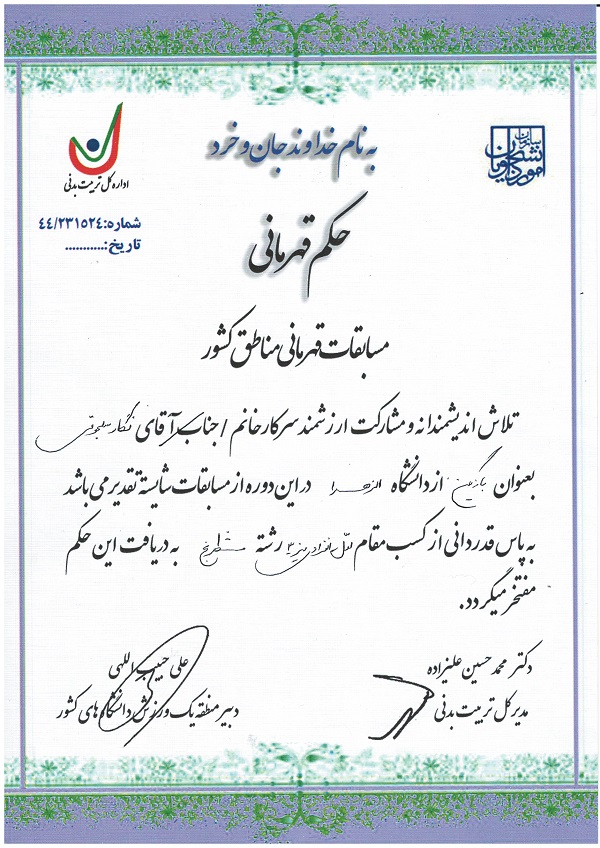 به نام خداوند جان و خرد
سازمان امور دانشجویان
اداره کل تربیت بدنی
شماره: ۴۴/۲۳۱۵۲۴
تاریخ:...........
حکم قهرمانی
مسابقات قهرمانی مناطق کشور
تلاش اندیشمندانه و مشارکت ارزشمند سرکار خانم / جناب آقای نگار سلجوقی
بعنوان بازیکن از دانشگاه الزهرا در این دوره از مسابقات شایسته تقدیر می باشد
به پاس قدردانی از کسب مقام اول انفرادی میز ۳ رشته شطرنج به دریافت این حکم
مفتخر میگردد.
دکتر محمد حسین علیزاده
مدیر کل تربیت بدنی
علی حبیب اللهی
دبیر منطقه یک ورزش دانشگاه های کشور